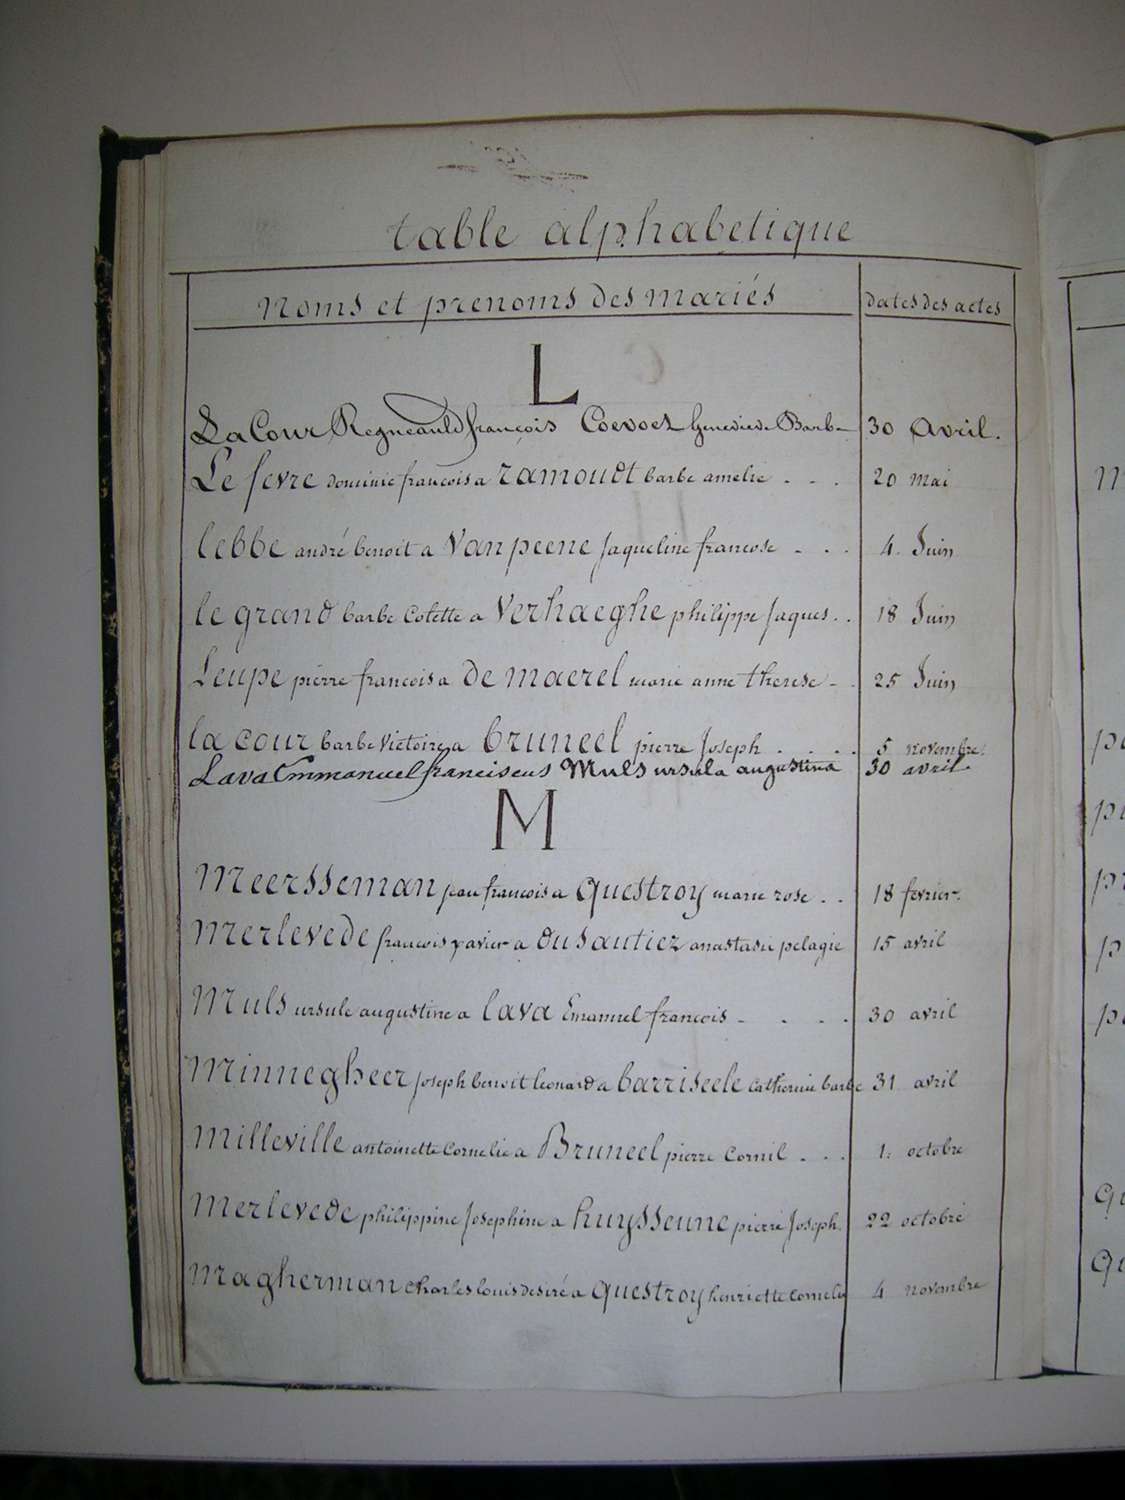 table alphabetique
Noms et prenoms des mariés
dates des actes
L
La Cour Regneauld françois Coevoet Genevieve Barbe 30 Avril.
Le fevre dominic francois a ramoudt barbe amelie . . . 20 Mai
lebbe andré benoit a Van peene Jaqueline francose . . . 4. Juin
le grand barbe Colette a Verhaeghe philippe Jaques . . 18 Juin
Leupe pierre francois a De maerel marie anne therese . . 25 Juin
la cour barbe Victoire a bruneel pierre Joseph . . . . 5 novembre.
Lava Emmanuel franciscus Muls ursula augustina 30 avril
M
Meersseman jean francois a Questroy marie rose . . 18 fevrier.
Merlevede francois xavier a du Sautiez anastasie pelagie 15 avril
Muls ursule augustine a lava Emanuel francois . . . . 30 avril
Minnegheer Joseph benoit leonard a barriseele Catherine barbe 31 avril
Milleville antoinette Cornelie a Bruneel pierre Cornil . . . 1. octobre
Merlevede philippine Josephine a huysseune pierre Joseph. 22 octobre
Magherman Charles louis desiré a Questroy henriette Cornelie 4 novembre
M
Q